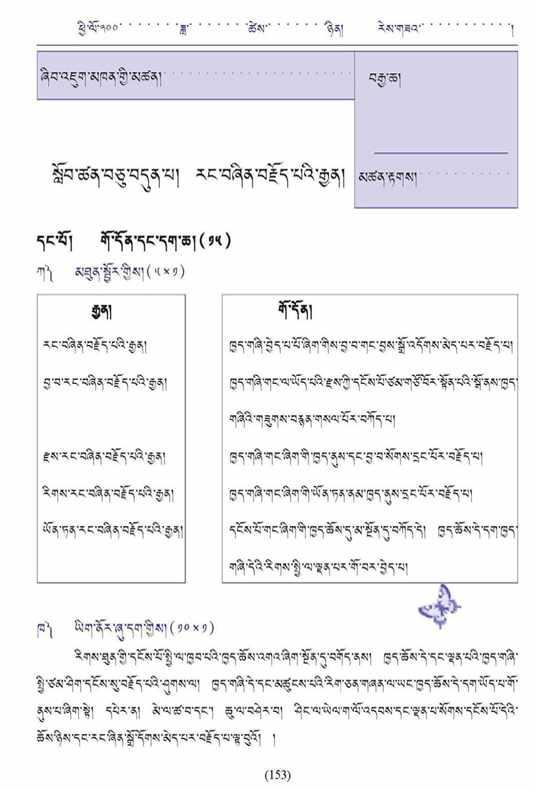 ཕྱི་ལོ་༢༠༠ ་ ་ ་ ་ ་ ་ ་ ་ ཟླ་ ་ ་ ་ ་ ་ ་ ་ ཚེས་ ་ ་ ་ ་ ་ ་ ཉིན། རེས་གཟའ་ ་ ་ ་ ་ ་ ་ ་ ་ །
ཞིབ་འཇུག་མཁན་གྱི་མཚན། ་ ་ ་ ་ ་ ་ ་ ་ ་ ་ ་ ་ ་ ་ ་ ་
བརྒྱ་ཆ།
སློབ་ཚན་བཅུ་བདུན་པ། རང་བཞིན་བརྗོད་པའི་རྒྱན།
མཚན་རྟགས། ་ ་ ་ ་ ་ ་ ་ ་
དང་པོ། གོ་དོན་དང་དག་ཆ། (༡༥)
ཀ༽ མཐུན་སྦྱོར་གྱིས། (༥×༡)
རྒྱན།
གོ་དོན།
རང་བཞིན་བརྗོད་པའི་རྒྱན།
ཁྱད་གཞི་བྱེད་པ་པོ་ཞིག་གིས་བྱ་བ་གང་བྱས་སྒྲོ་འདོགས་མེད་པར་བརྗོད་པ།
བྱ་བ་རང་བཞིན་བརྗོད་པའི་རྒྱན།
ཁྱད་གཞི་གང་ལ་ཡོད་པའི་རྫས་ཀྱི་དངོས་པོ་ཙམ་གཙོ་བོར་སྟོན་པའི་སྒོ་ནས་ཁྱད་
གཞིའི་གཟུགས་བརྙན་གསལ་པོར་བཀོད་པ།
རྫས་རང་བཞིན་བརྗོད་པའི་རྒྱན།
ཁྱད་གཞི་གང་ཞིག་གི་ཁྱད་ནུས་དང་བྱ་བ་སོགས་དྲང་པོར་བརྗོད་པ།
རིགས་རང་བཞིན་བརྗོད་པའི་རྒྱན།
ཁྱད་གཞི་གང་ཞིག་གི་ཡོན་ཏན་ནམ་ཁྱད་ནུས་དྲང་པོར་བརྗོད་པ།
ཡོན་ཏན་རང་བཞིན་བརྗོད་པའི་རྒྱན།
དངོས་པོ་གང་ཞིག་གི་ཁྱད་ཆོས་དུ་མ་སྔོན་དུ་བཀོད་དེ། ཁྱད་ཆོས་དེ་དག་ཁྱད་
གཞི་དེའི་རིགས་སྤྱི་ལ་ལྡན་པར་གོ་བར་བྱེད་པ།
ཁ༽ ཡིག་ནོར་ཞུ་དག་གྱིས། (༡༠×༡)
རིགས་ཐུན་གྱི་དངོས་པོ་སྤྱི་ལ་ཁྱབ་པའི་ཁྱད་ཆོས་འགའ་ཞིག་སྔོན་དུ་བགོད་ནས། ཁྱད་ཆོས་དེ་དང་ལྡན་པའི་ཁྱད་གཞི་
སྤྱི་ཙམ་ཤིག་དངོས་སུ་བརྗོད་པའི་ཤུགས་ལ། ཁྱད་གཞི་དེ་དང་མཚུངས་པའི་རིག་ཅན་གཞན་ལ་ཡང་ཁྱད་ཆོས་དེ་དག་ཡོད་པ་གོ་
ནུས་པ་ཞིག་སྟེ། དཔེར་ན། མེ་ལ་ཚ་བ་དང༌། ཆུ་ལ་བཤེར་བ། ཤིང་ལ་ཡེལ་ག་ལོ་འདབས་དང་ལྡན་པ་སོགས་དངོས་པོ་དེའི་
ཆོས་ཉིས་དང་རང་ཞིན་སྒྲོ་དོགས་མེད་པར་བརྗོད་པ་ལྟ་བུའོ། །
(153)